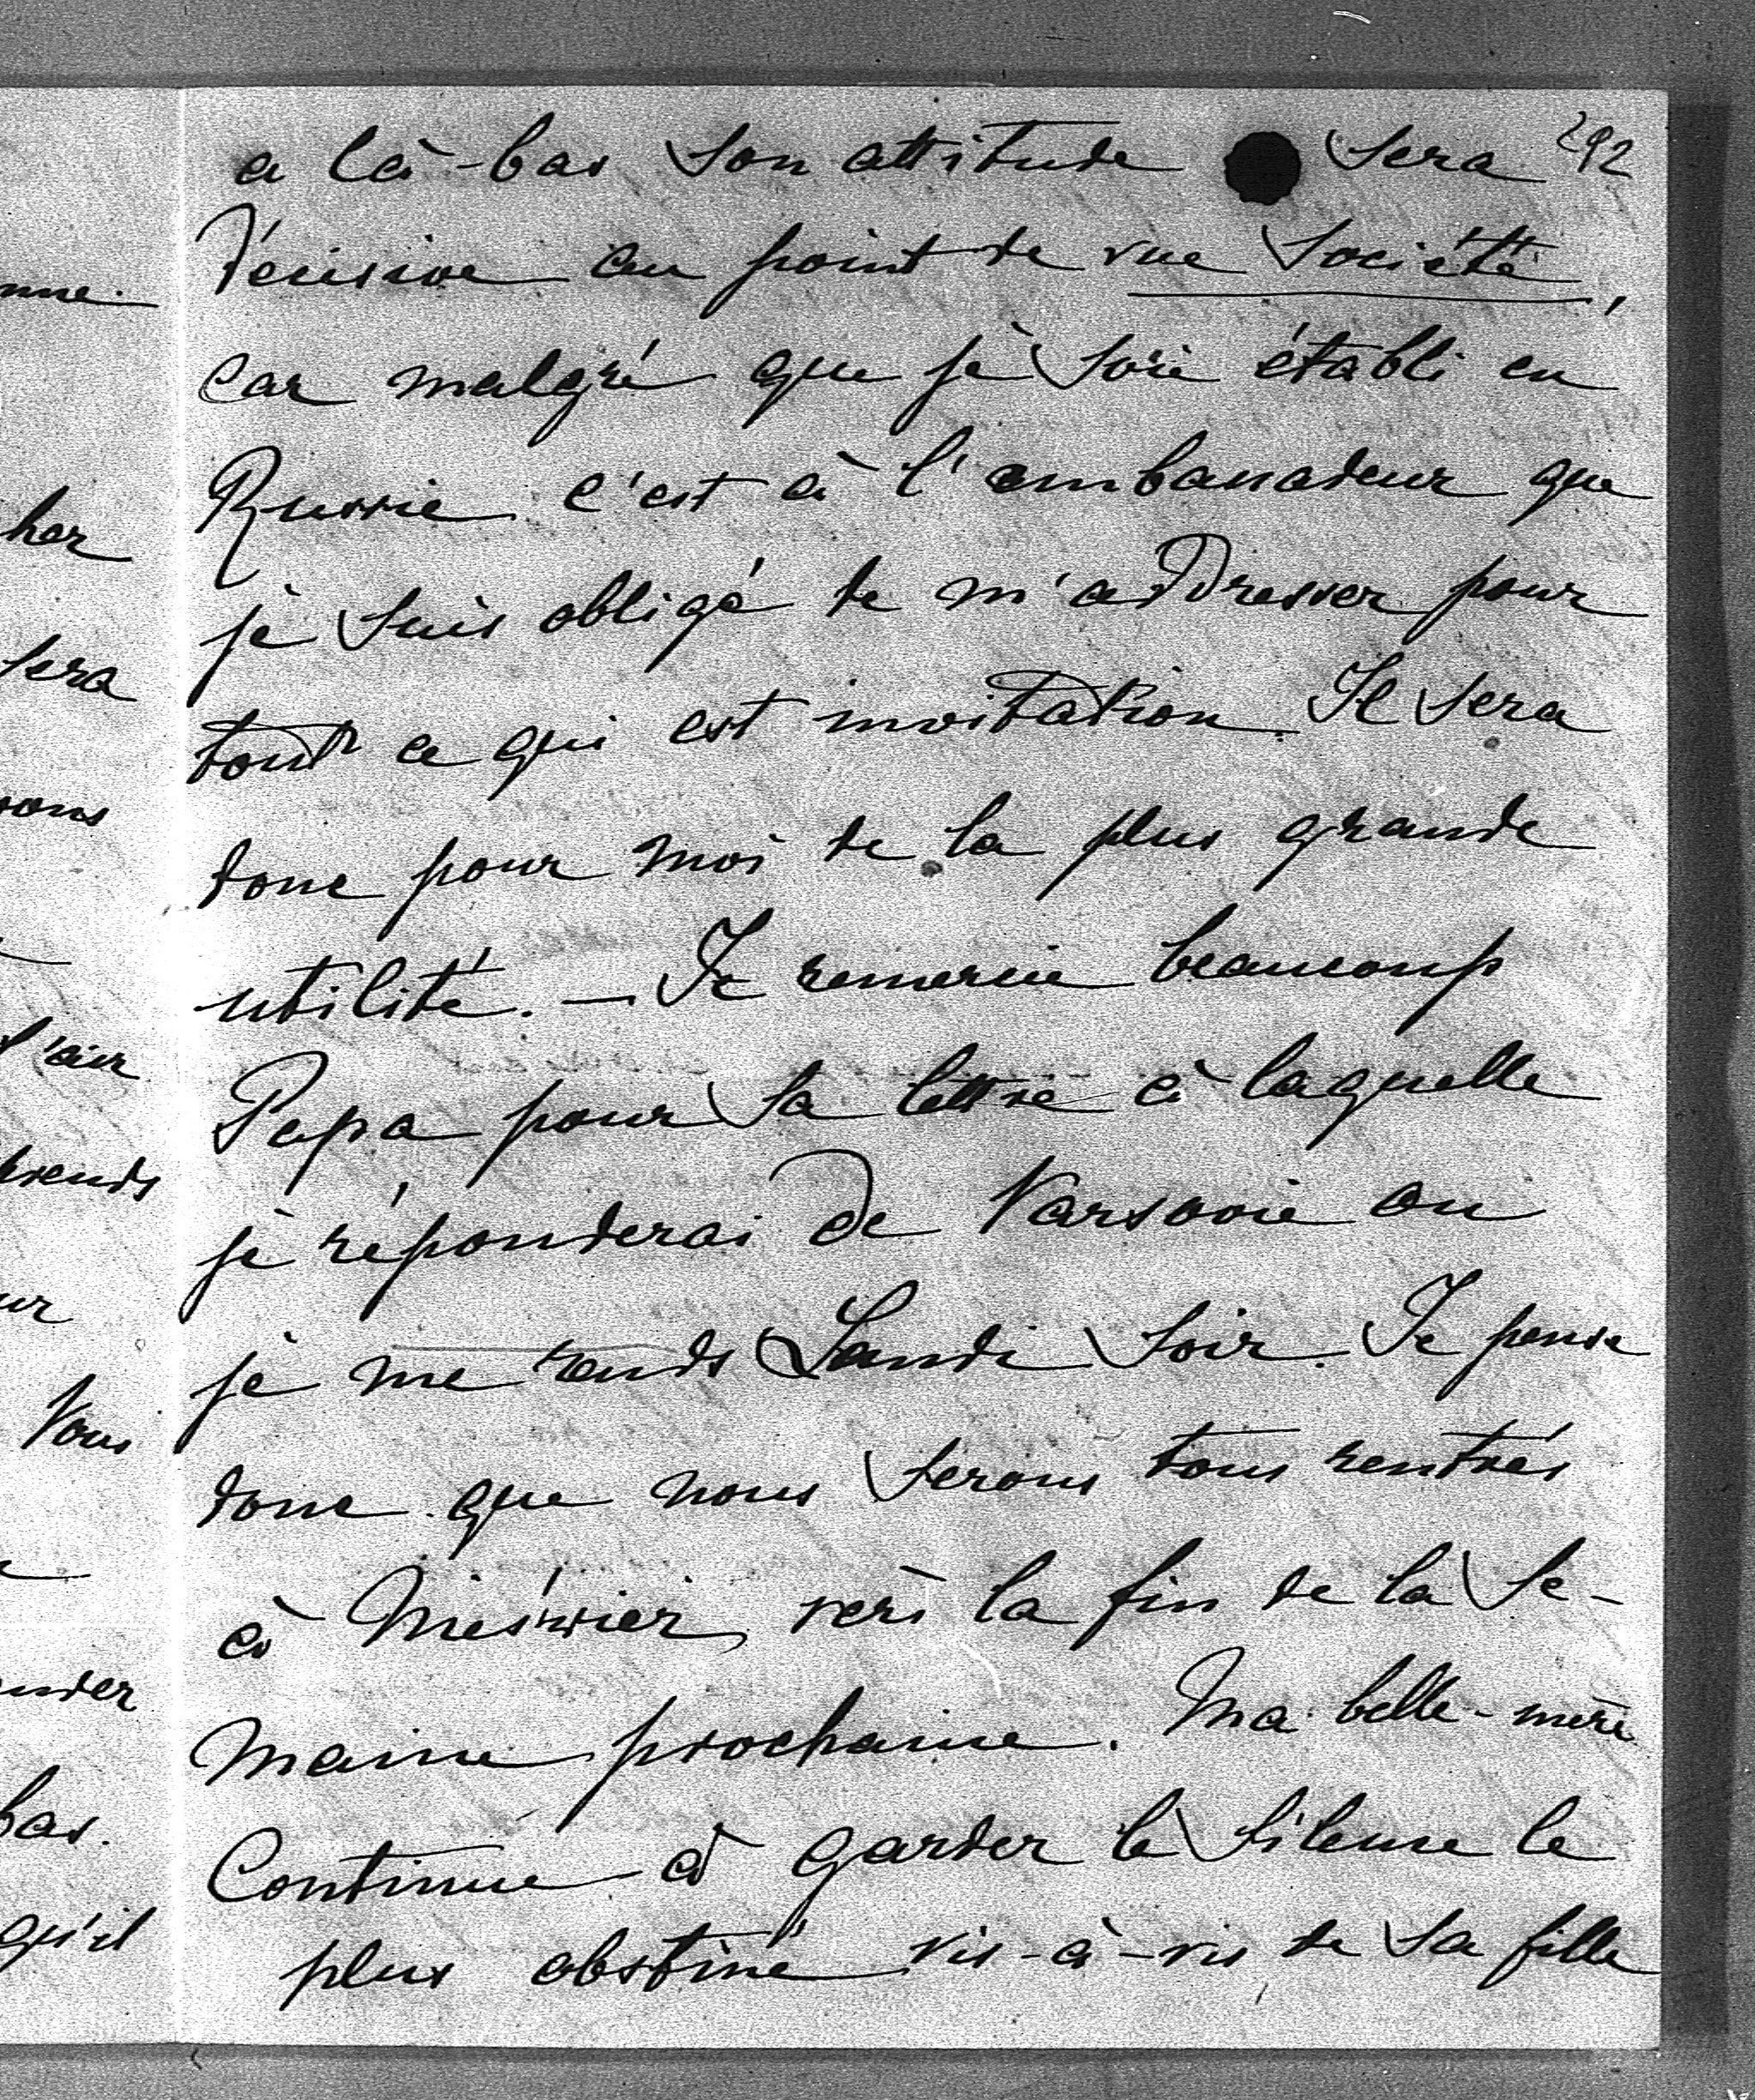 292
a là-bas son attitude sera
décisive au point de vue société,
car malgré que je sois établi en
Russie c'est à l'ambassadeur que
je suis obligé de m'addresser pour
tout ce qui est invitation. Il sera
donc pour moi de la plus grande
utilité. — Je remercie beaucoup
Papa pour sa lettre à laquelle
je réponderai de Varsovie ou
je me rends Lundi soir. Je pense
donc que nous serons tous rentrés
à vers la fin de la se-
maine prochaine. Ma belle-mère
continue à garder le silence le
plus obstiné vis-à-vis de sa fille
her
sera
l'air
Vous
bas.
qu'il